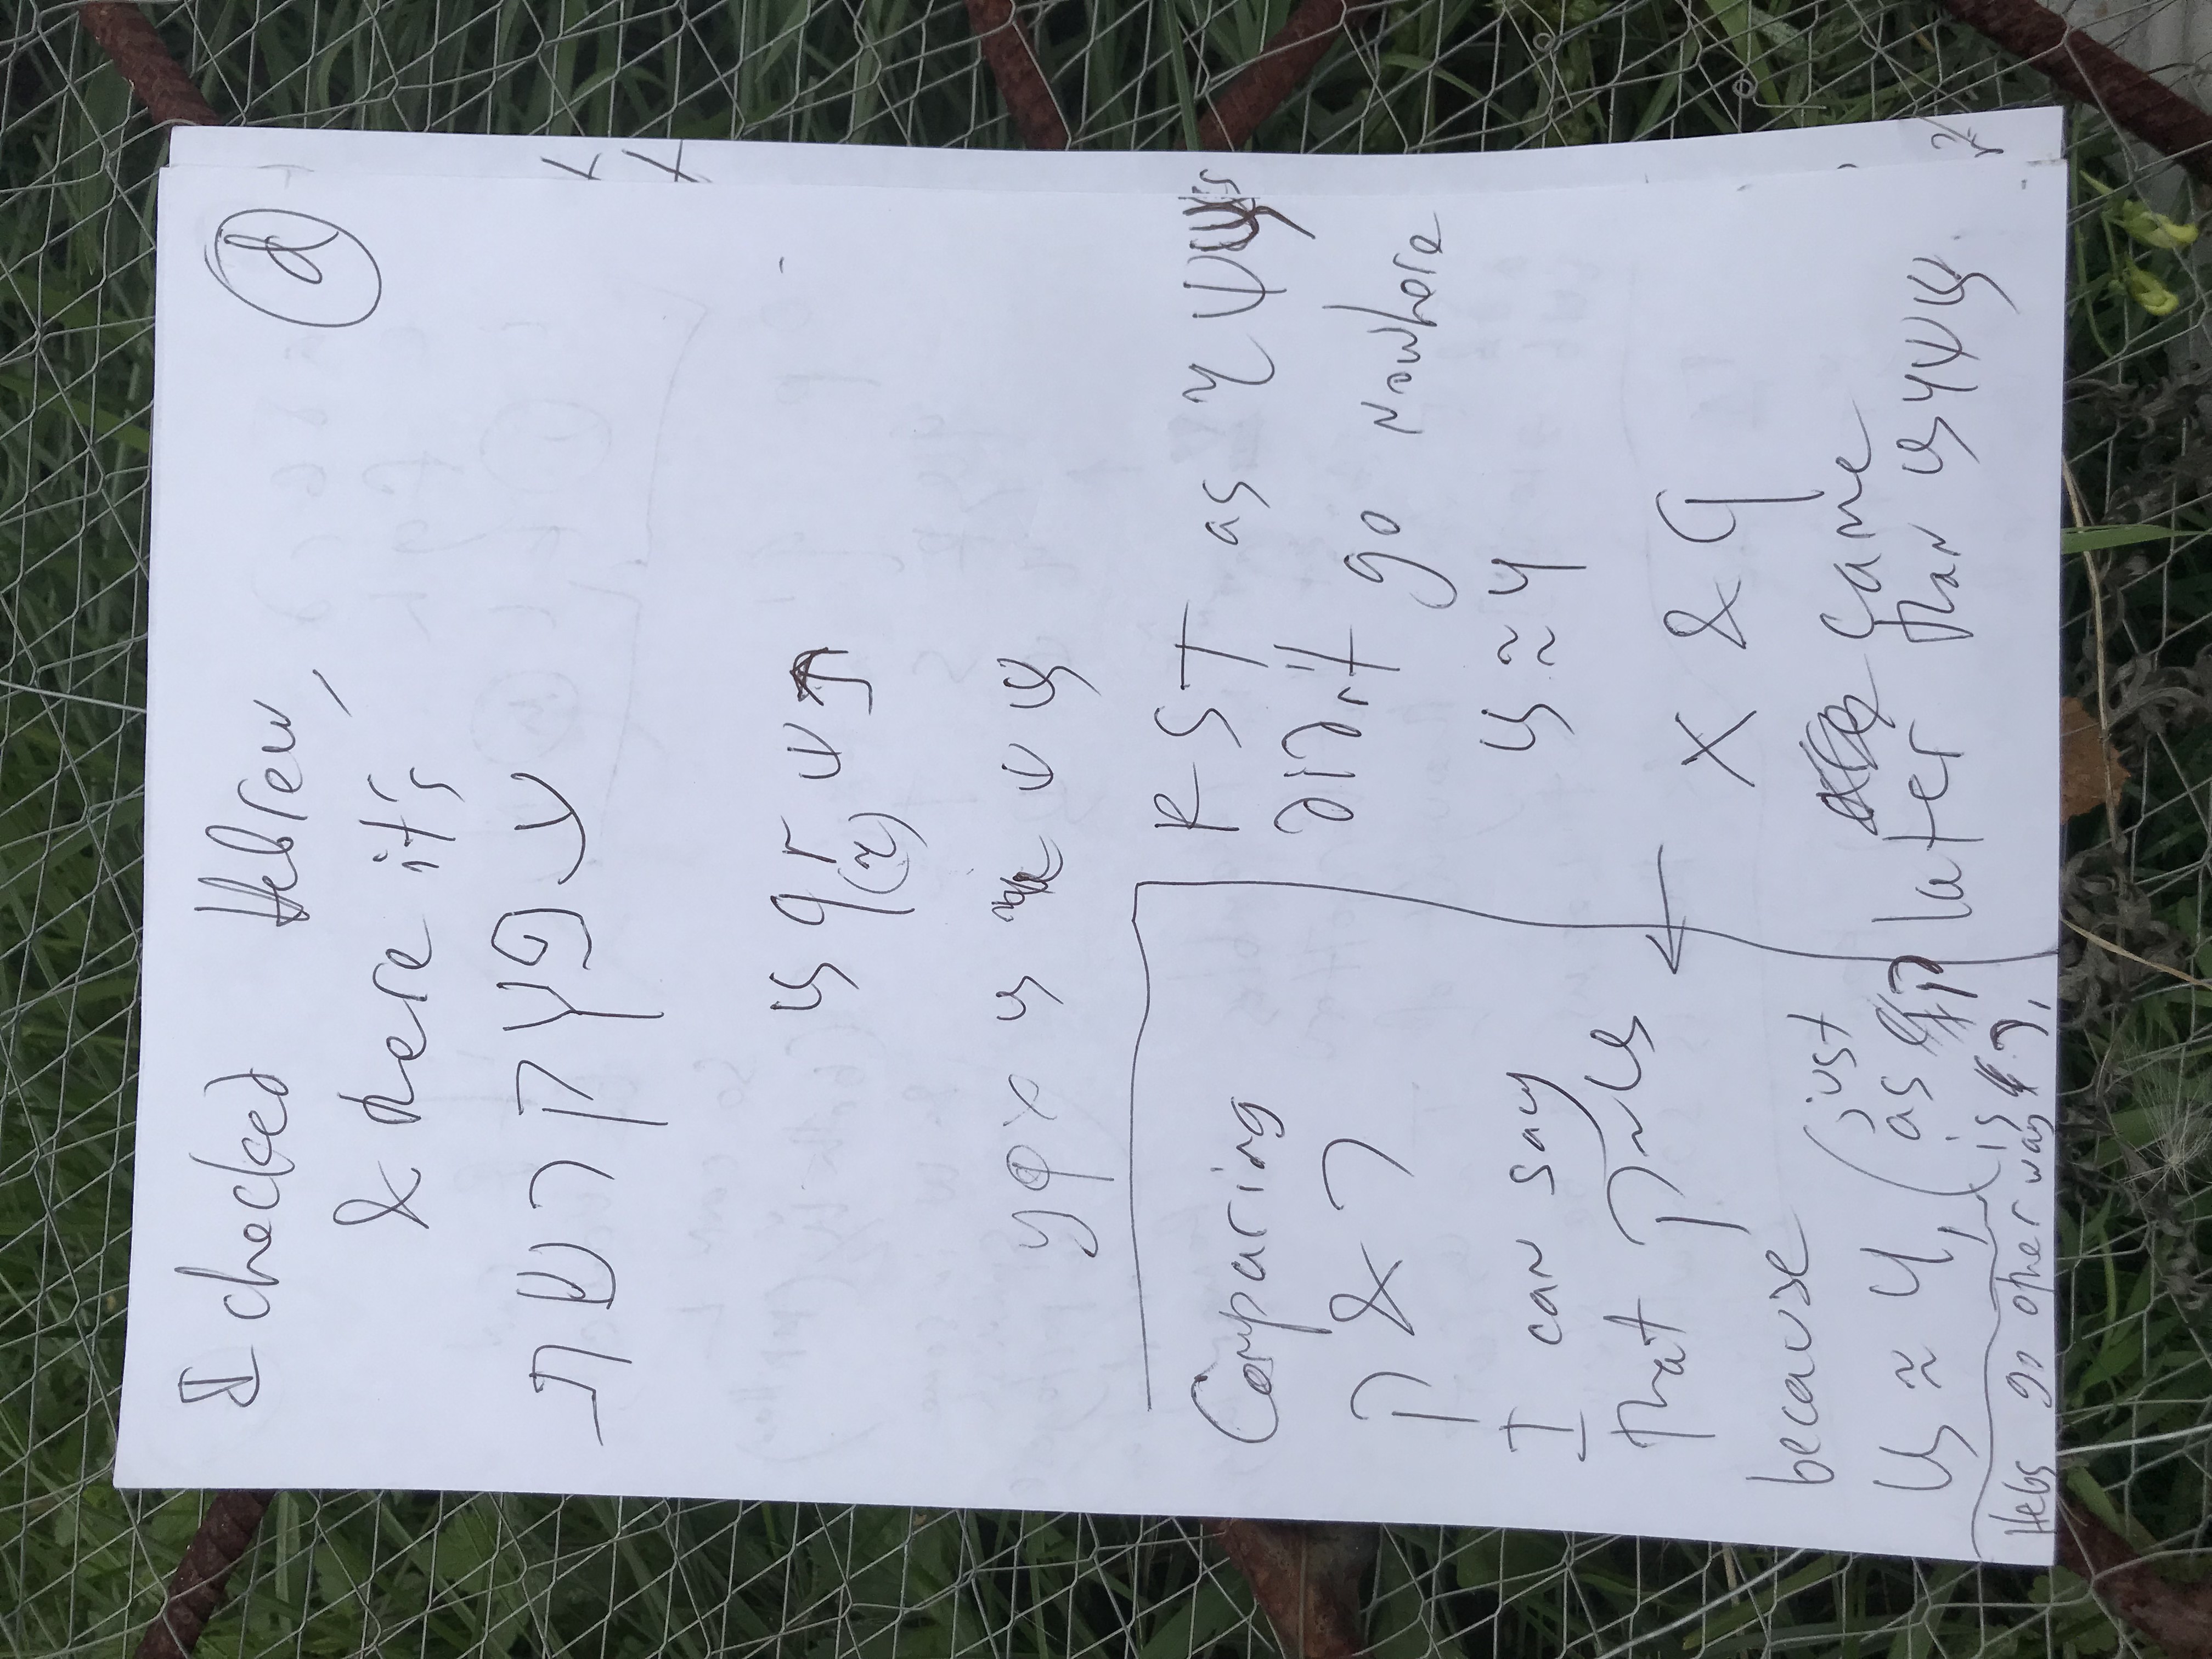 I checked Hebrew,
& there it's
ע פ ץ ק ר ש ת
ц q r ψ
(ч)
y φ x ц ψ
Comparing
ק & ר
I can say
that ק ~ ц
because
ц ≈ ч, (just
as ק
is ר,
Hebs go other way
R S T as ч ψ
didn't go nowhere
ц ≈ ч
X & q
came
later than ц ч ψ
d